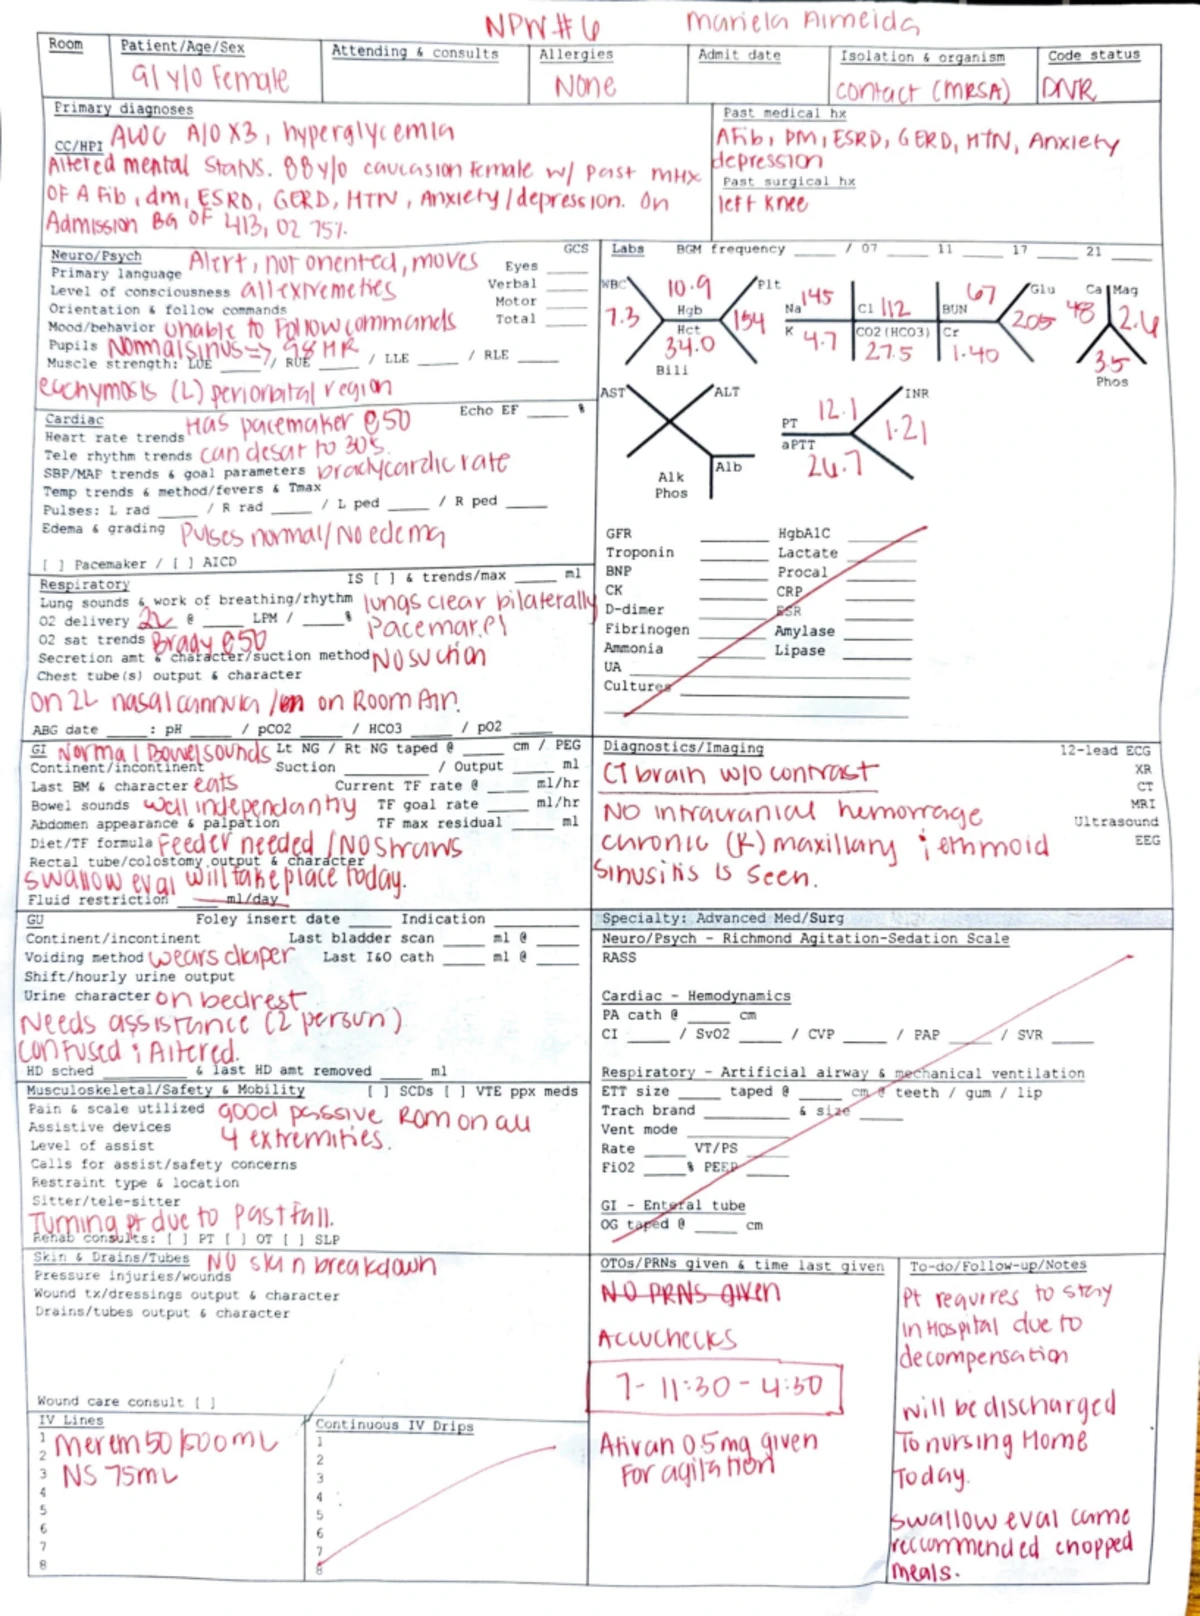 NPW#6 Mariela Almeida
Room Patient/Age/Sex Attending & consults Allergies Admit date Isolation & organism Code status
91 y/o Female None contact (MRSA) DNR
Primary diagnoses
AWC A/O X3, hyperglycemia
CC/HPI
Altered mental Status. 88 y/o caucasion female w/ past MHx
OF A Fib, dm, ESRD, GERD, HTN, Anxiety/depression. On
Admission BG OF 413, O2 75%.
Past medical hx
AFib, DM, ESRD, GERD, HTN, Anxiety
depression
Past surgical hx
left knee
Neuro/Psych Alert, not oriented, moves GCS
Primary language Eyes ____
Level of consciousness all extremeties Verbal ____
Orientation & follow commands Motor ____
Mood/behavior unable to Follow commands Total ____
Pupils Normal sinus => 98 HR
Muscle strength: LUE ____ // RUE ____ / LLE ____ / RLE ____
ecchymosis (L) periorbital region
Labs BGM frequency ____ / 07 ____ 11 ____ 17 ____ 21 ____
WBC 7.3 10.9 Hgb Hct 34.0 Plt 154
Na 145 Cl 112 BUN 67 Glu 205
K 4.7 CO2 (HCO3) 27.5 Cr 1.40
Ca 48 Mag 2.6 35 Phos
Bili
AST ALT
Alk Phos Alb
PT 12.1 INR 1.21
aPTT 26.7
Cardiac Has pacemaker @50 Echo EF ____ %
Heart rate trends
Tele rhythm trends can desat to 30s.
SBP/MAP trends & goal parameters bradycardic rate
Temp trends & method/fevers & Tmax
Pulses: L rad ____ / R rad ____ / L ped ____ / R ped ____
Edema & grading Pulses normal/No edema
[ ] Pacemaker / [ ] AICD
GFR ____ HgbA1C ____
Troponin ____ Lactate ____
BNP ____ Procal ____
CK ____ CRP ____
D-dimer ____ ESR ____
Fibrinogen ____ Amylase ____
Ammonia ____ Lipase ____
UA ____
Cultures ____
Respiratory IS [ ] & trends/max ____ ml
Lung sounds & work of breathing/rhythm lungs clear bilaterally
O2 delivery 2L @ ____ LPM / ____%
O2 sat trends Brady @50
Secretion amt & character/suction method No suction
Chest tube(s) output & character
on 2L nasal cannula / on Room Air.
ABG date ____: pH ____ / pCO2 ____ / HCO3 ____ / pO2 ____
GI Normal Bowel sounds Lt NG / Rt NG taped @ ____ cm / PEG
Continent/incontinent Suction ____ / Output ____ ml
Last BM & character eats Current TF rate @ ____ ml/hr
Bowel sounds well independantly TF goal rate ____ ml/hr
Abdomen appearance & palpation TF max residual ____ ml
Diet/TF formula Feeder needed / No straws
Rectal tube/colostomy output & character
swallow eval will take place today.
Fluid restriction ____ ml/day
Diagnostics/Imaging 12-lead ECG
CT brain w/o contrast XR
CT
NO intracranial hemorrage MRI
Ultrasound
chronic (R) maxillary & ethmoid EEG
sinusitis is seen.
GU Foley insert date ____ Indication ____
Continent/incontinent Last bladder scan ____ ml @ ____
Voiding method wears diaper Last I&O cath ____ ml @ ____
Shift/hourly urine output
Urine character on bedrest
Needs assistance (2 person)
confused & Altered.
HD sched ____ & last HD amt removed ____ ml
Specialty: Advanced Med/Surg
Neuro/Psych - Richmond Agitation-Sedation Scale
RASS
Cardiac - Hemodynamics
PA cath @ ____ cm
CI ____ / SvO2 ____ / CVP ____ / PAP ____ / SVR ____
Respiratory - Artificial airway & mechanical ventilation
ETT size ____ taped @ ____ cm @ teeth / gum / lip
Trach brand ____ & size ____
Vent mode ____
Rate ____ VT/PS ____
FiO2 ____% PEEP ____
GI - Enteral tube
OG taped @ ____ cm
Musculoskeletal/Safety & Mobility [ ] SCDs [ ] VTE ppx meds
Pain & scale utilized good passive Rom on all
Assistive devices 4 extremities.
Level of assist
Calls for assist/safety concerns
Restraint type & location
Sitter/tele-sitter
Turning pt due to past fall.
Rehab consults: [ ] PT [ ] OT [ ] SLP
Skin & Drains/Tubes NO skin breakdown
Pressure injuries/wounds
Wound tx/dressings output & character
Drains/tubes output & character
Wound care consult [ ]
OTOs/PRNs given & time last given
NO PRNS given
Accuchecks
7- 11:30 - 4:30
Ativan 0.5mg given
For agitation
To-do/Follow-up/Notes
Pt requires to stay
in Hospital due to
decompensation
will be discharged
To nursing Home
Today.
swallow eval came
reccommended chopped
meals.
IV Lines
1 Merem 50/500mL
2
3 NS 75mL
4
5
6
7
8
Continuous IV Drips
1
2
3
4
5
6
7
8